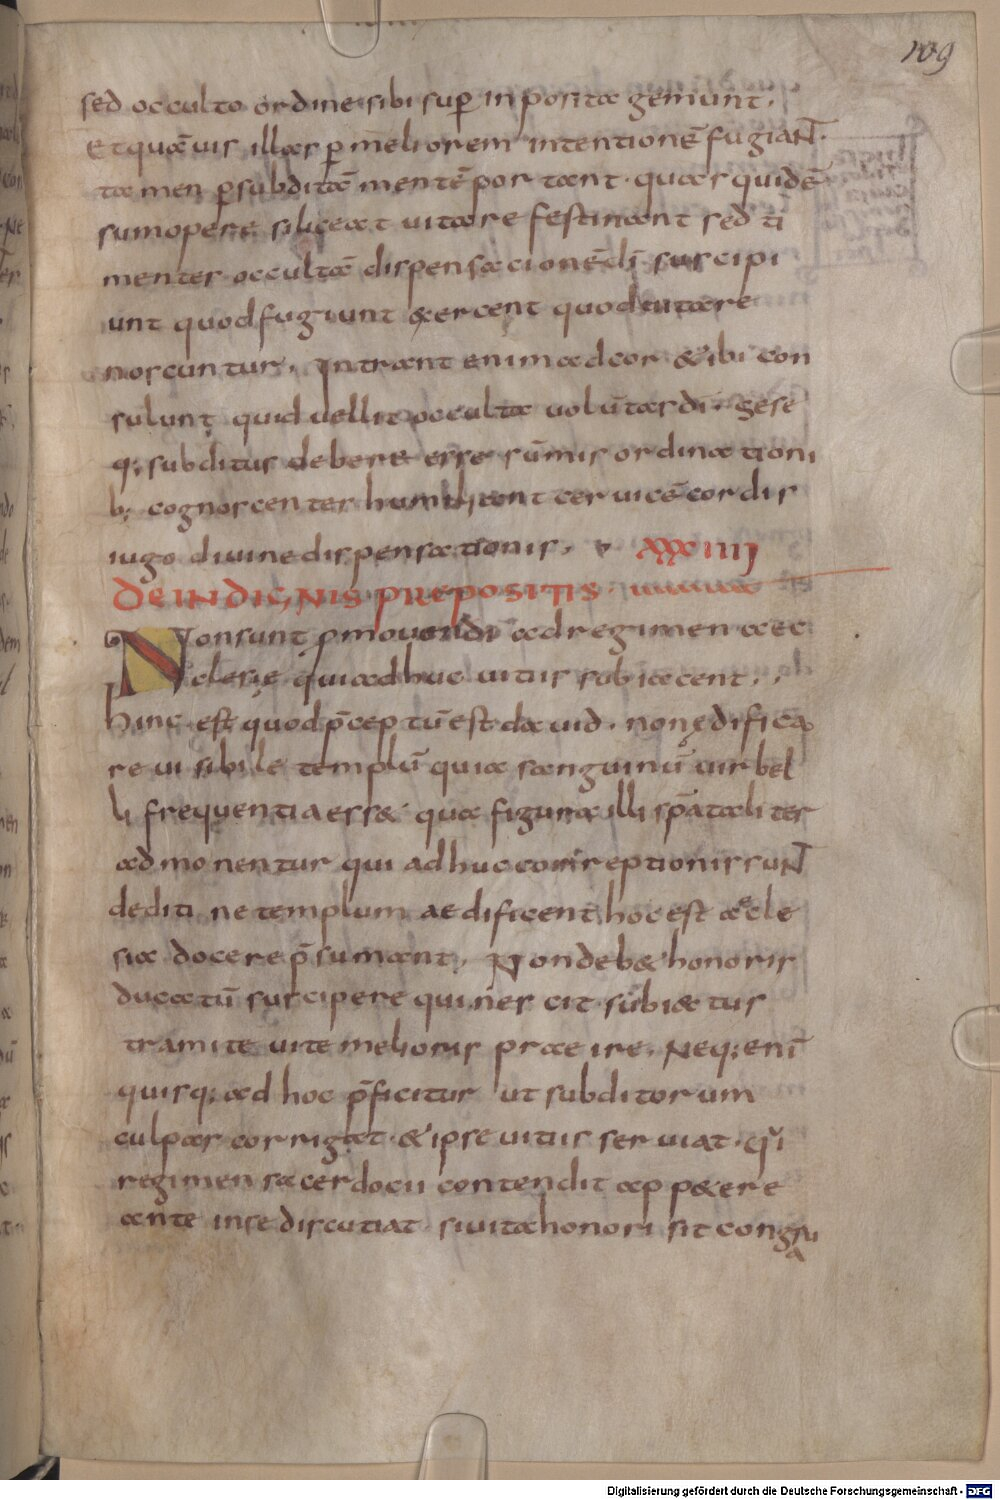 109
sed occulto ordine sibi sup̄ inposita gemunt.
Et quāuis illas p̄ meliorem intentionē fugiaNT.
tamen p̄ subditā mentē portant. quas quidē
sumopere si liceat uitare festinant sed ti
menter occultā dispensacionē dī suscipi
unt quod fugiunt & ercent quod uitare
noscuntur. Intrant enim ad cor & ibi con
sulunt quid uellit occulta volūtas dī. sese
q; subditus debere esse sūmis ordinationi
b; cognoscentes humilient ceruicē cordis
iugo divine dispensationis. XXXIIII
DE INDIGNIS PREPOSITIS.
Non sunt p̄mouendi ad regimen aec
clesię qui adhuc uitiis subiacent.
hinc est quod p̄ceptū est dauid. non ędifica
re uisibile templū quia sanguinū uir bel
li frequentia ess& qua figura illi sp̄ataliter
admonentur qui adhuc corireptionis suNT
dediti ne templum aedificent hoc est aecle
sia docere p̄sumant. Non deb& honoris
ducatū suscipere qui nescit subiectus
tramite uite melioris praeire. Neq; enī
quisq; ad hoc p̄ficitur ut subditorum
culpas corrigat. & ipse uitiis serviat. qui
regimen sacerdocii contendit app&ere
ante in se discutiat si uita honori sit congru
a
Digitalisierung gefördert durch die Deutsche Forschungsgemeinschaft - DFG